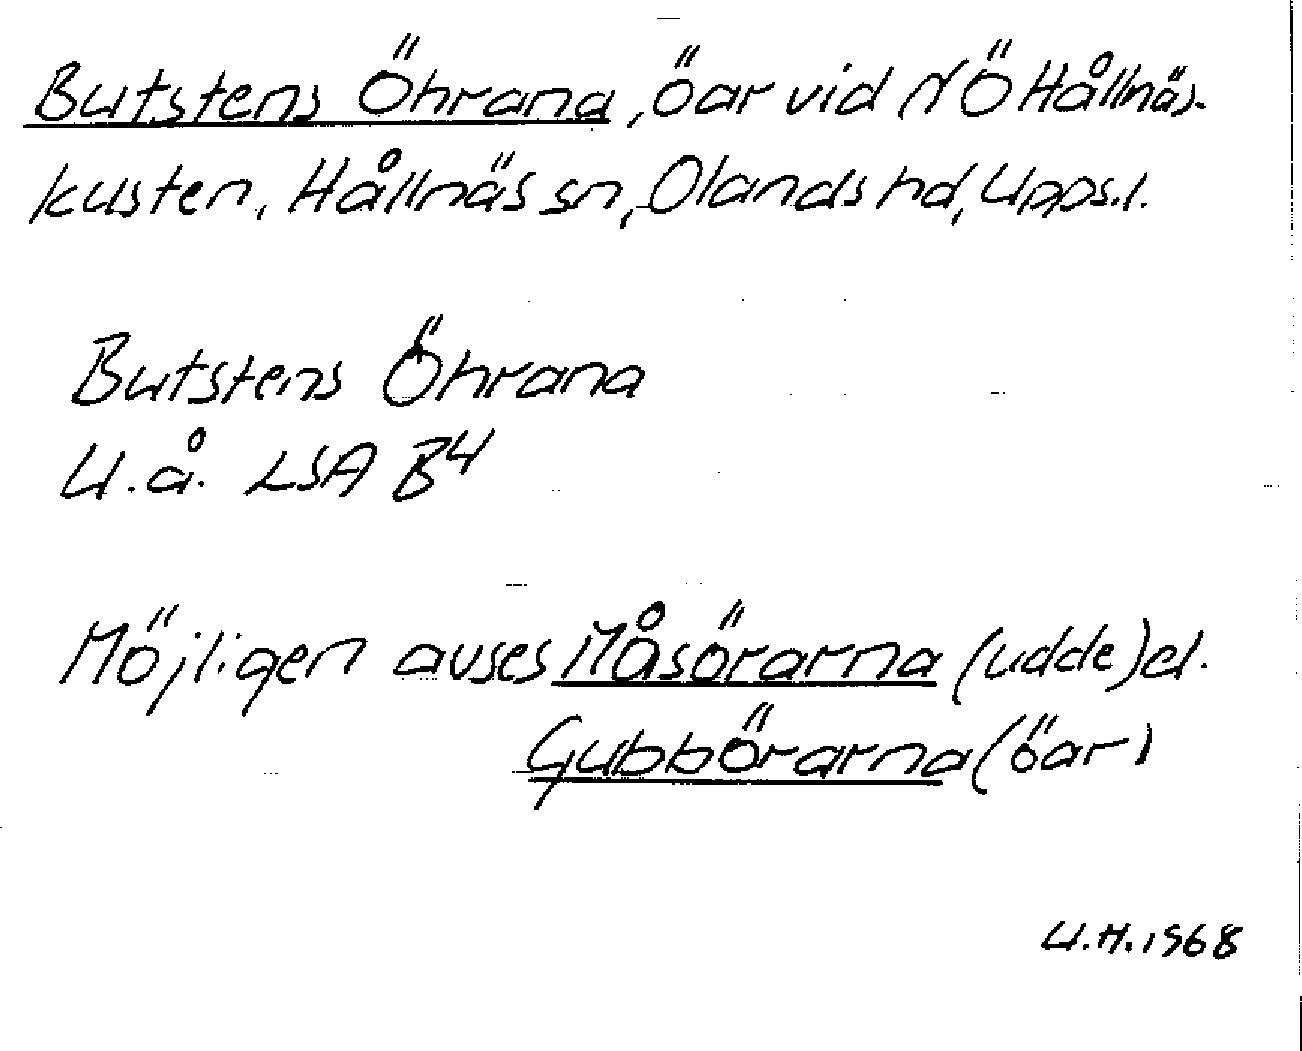 Butstens Öhrana, öar vid NÖ Hållnäs-
kusten, Hållnäs sn, Olands hd, Upps.l.
Butstens Öhrana
U.å. LSA B4
Möjligen avses Måsörarna (udde) el.
Gubbörarna (öar)
U.H. 1968